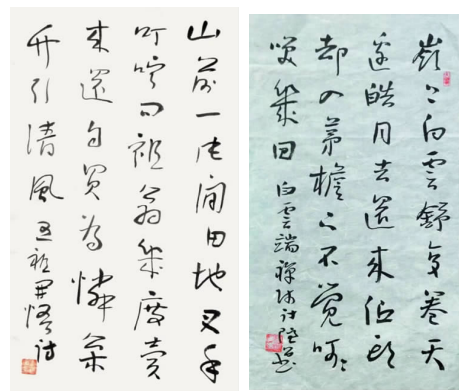 山前一片閒田地叉手
叮嚀問祖翁幾度賣
來還自買為憐松
竹引清風 五祖開悟詩
嶺上白雲舒复卷天
邊皓月去還來低頭
却入茅檐下不覺呵呵
笑幾回 白雲端禪師詩